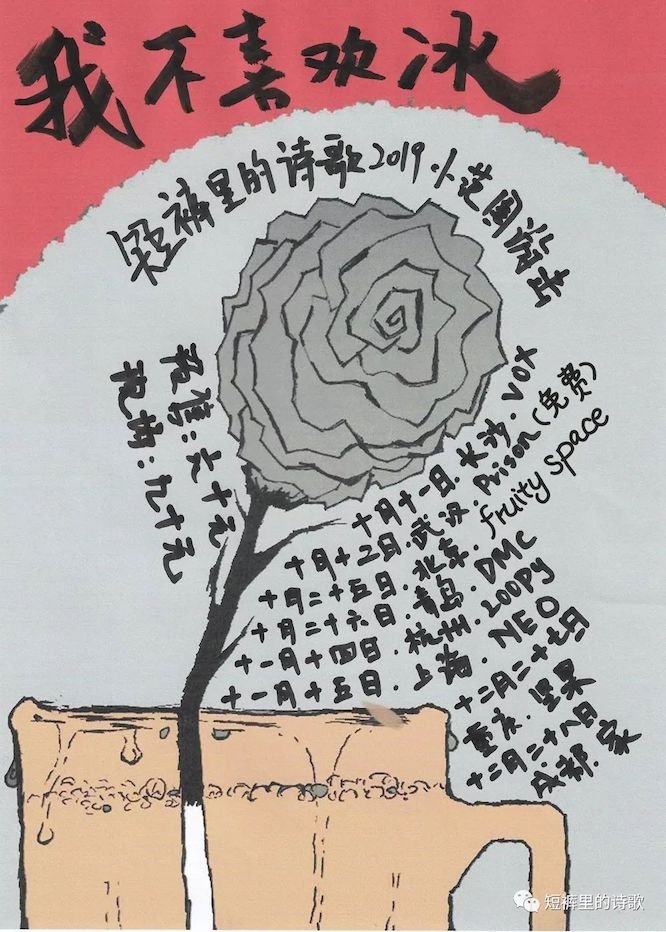 我不喜欢冰
短裤里的诗歌2019.小范围游击
预售：六十元
现场：九十元
十月十一日.长沙.VOX
十月十二日.武汉.Prison(免费)
十月二十五日.北京.fruity space
十月二十六日.青岛.DMC
十一月十四日.杭州.LOOPY
十一月十五日.上海.NEO
十二月二十七日
重庆.坚果
十二月二十八日
成都.家
短裤里的诗歌